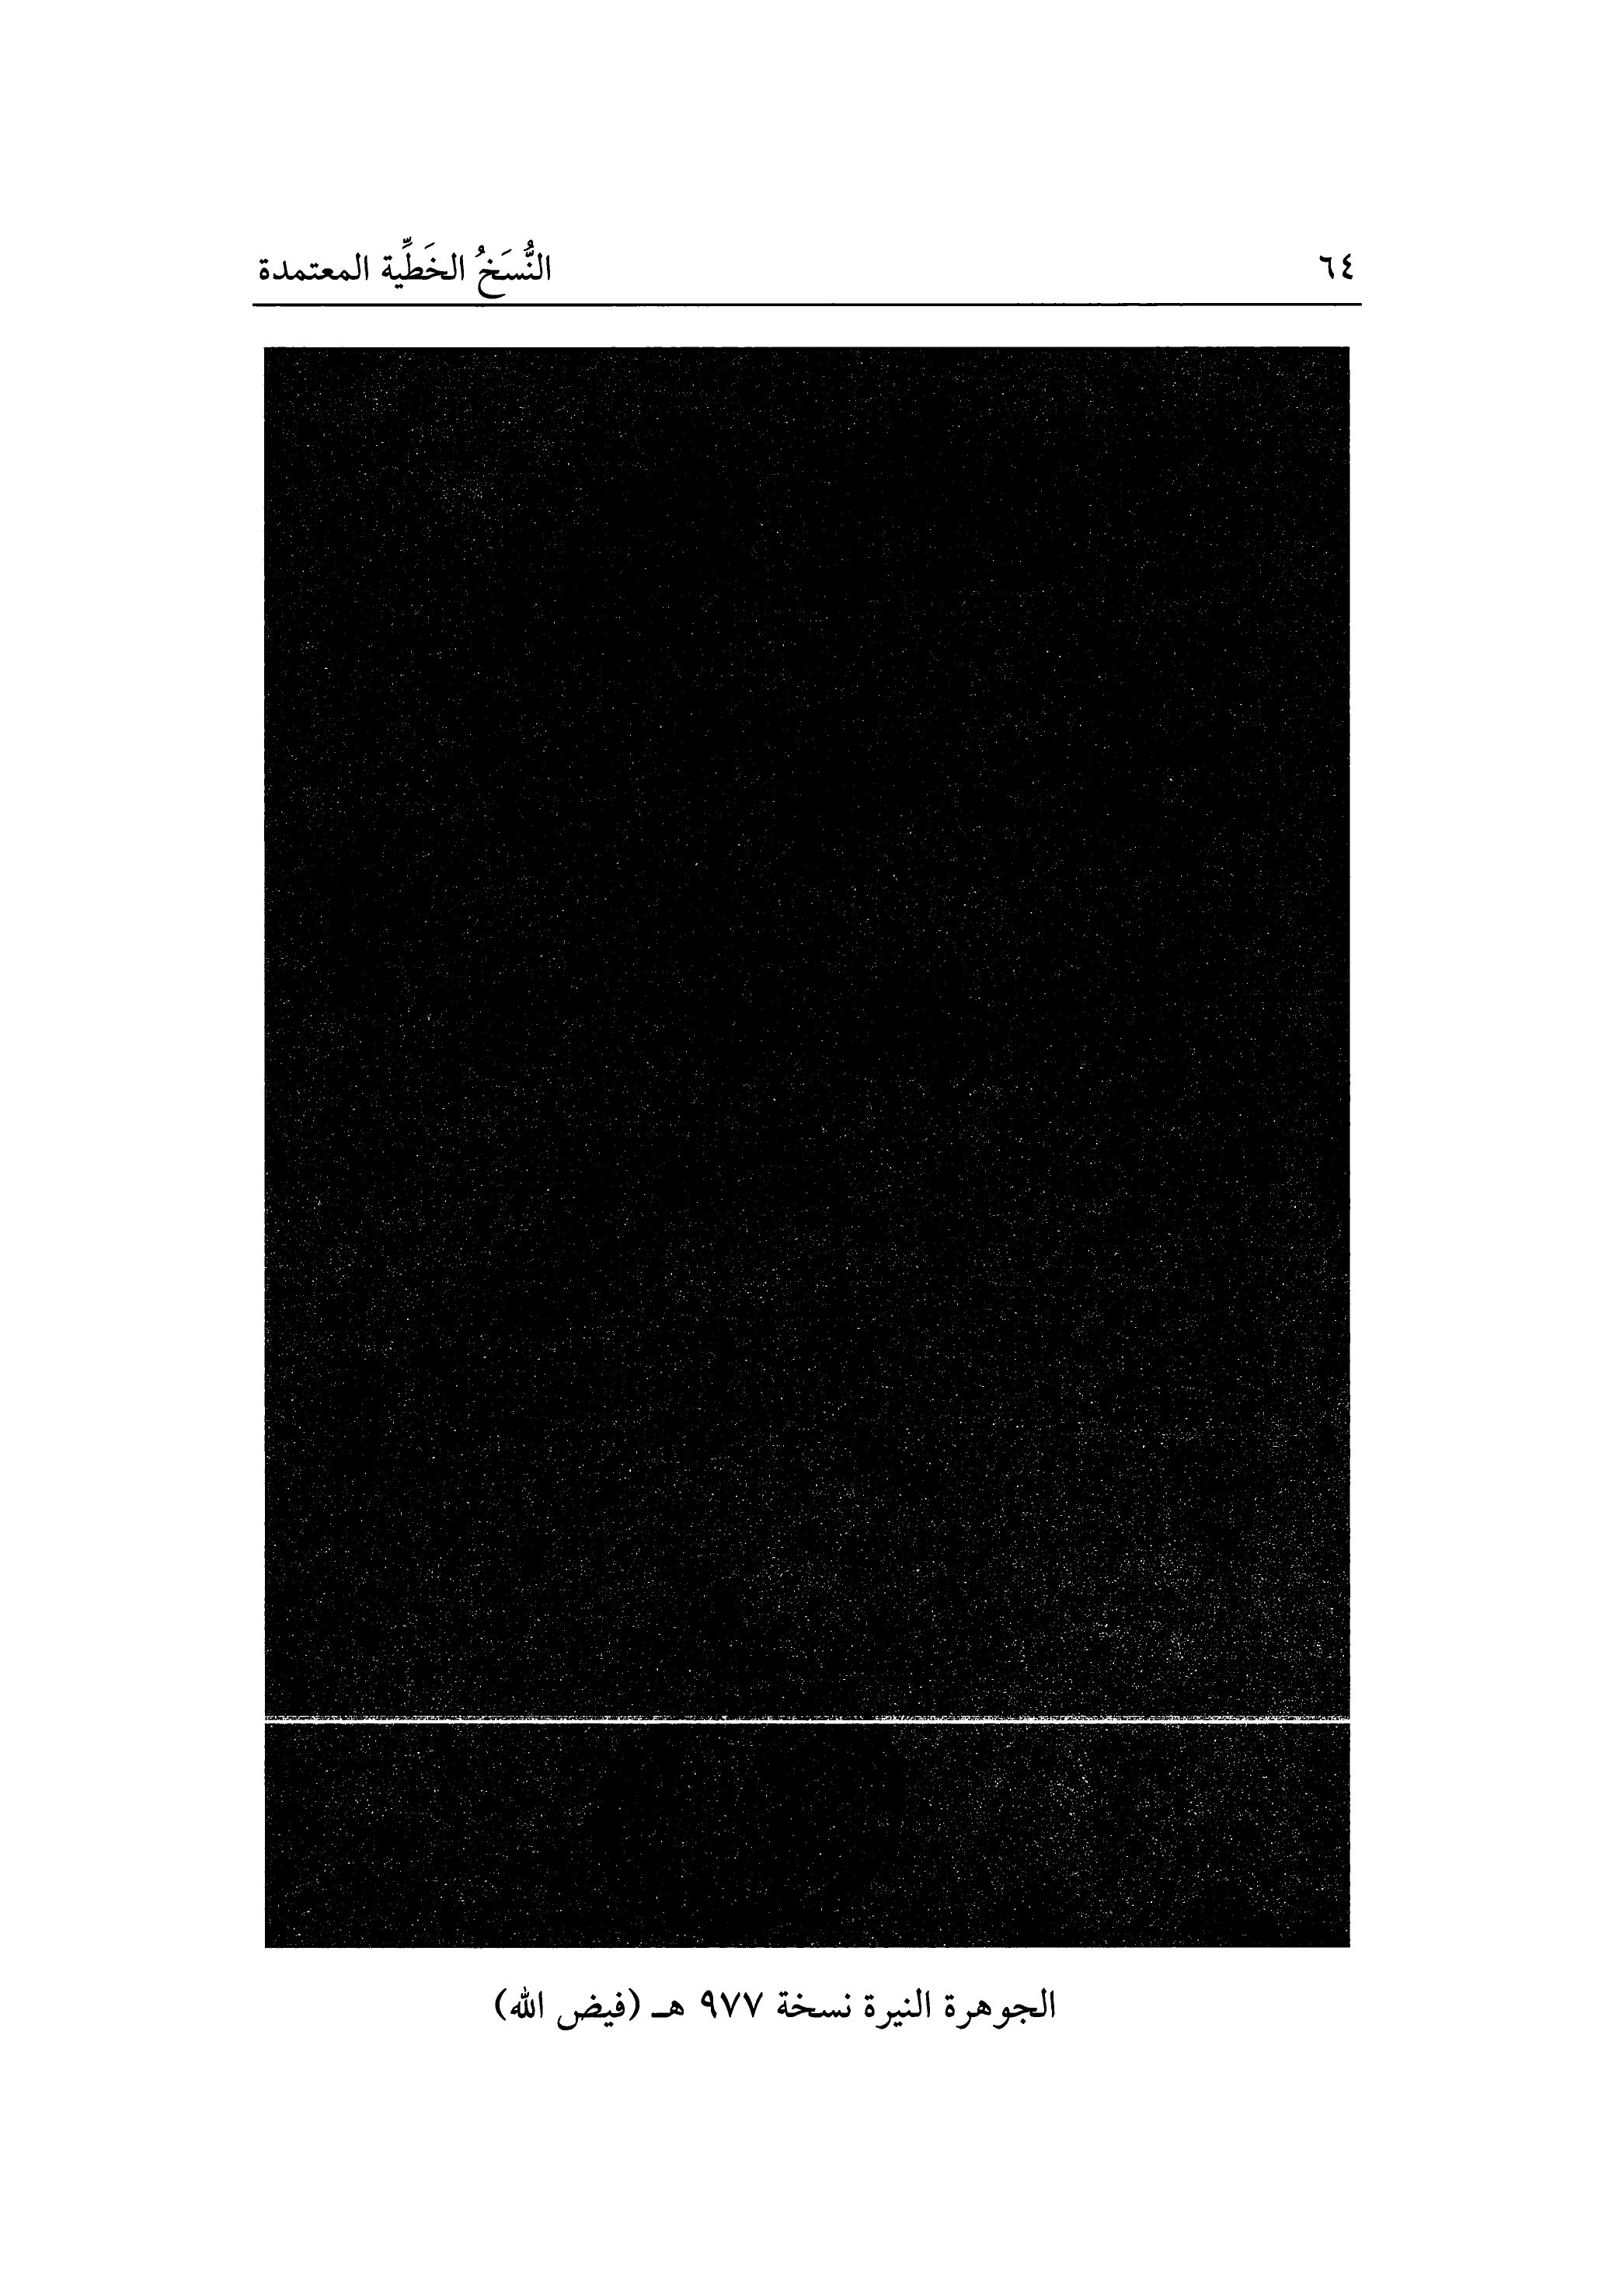 ٦٤
النُّسَخُ الخَطِّية المعتمدة
الجوهرة النيرة نسخة ٩٧٧ هـ (فيض الله)